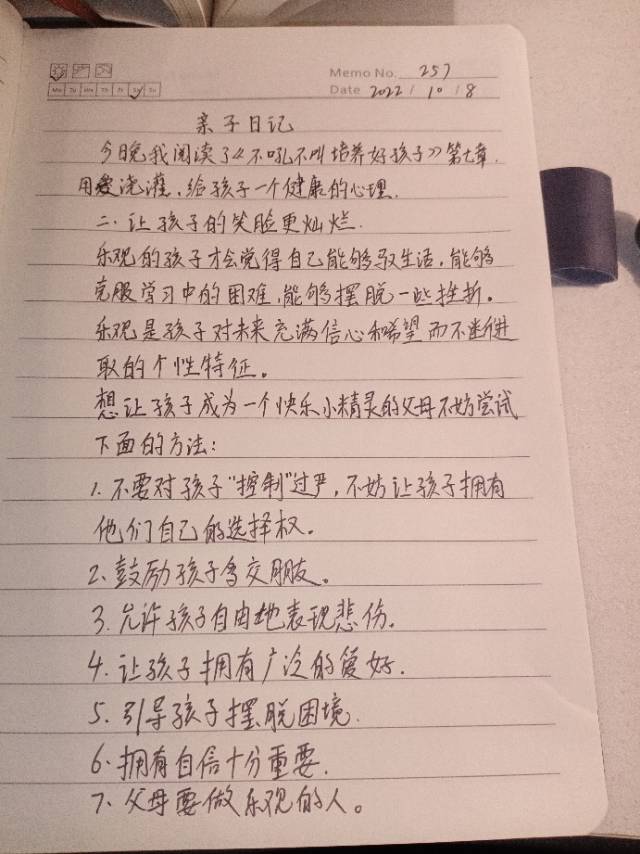 Memo No. 257
Mo Tu We Th Fr Sa Su
Date 2022 / 10 / 8
亲子日记
今晚我阅读了《不吼不叫培养好孩子》第七章.
用爱浇灌,给孩子一个健康的心理.
二.让孩子的笑脸更灿烂.
乐观的孩子才会觉得自己能够驭生活,能够
克服学习中的困难,能够摆脱一些挫折。
乐观是孩子对未来充满信心和希望而不断进
取的个性特征。
想让孩子成为一个快乐小精灵的父母不妨尝试
下面的方法:
1.不要对孩子"控制"过严,不妨让孩子拥有
他们自己的选择权。
2.鼓励孩子多交朋友。
3.允许孩子自由地表现悲伤。
4.让孩子拥有广泛的爱好.
5.引导孩子摆脱困境.
6.拥有自信十分重要.
7.父母要做乐观的人。